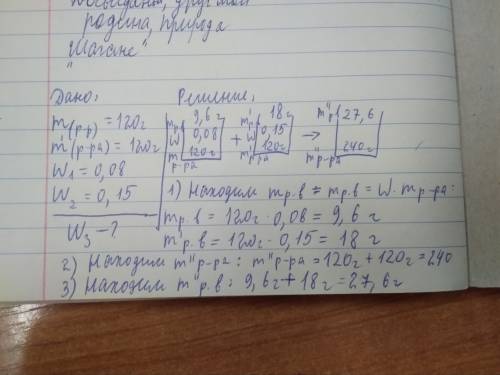 родина, природа
"Шагане"
Дано: Решение:
m(р-р) = 120г
m'(р-ра) = 120г
W1 = 0,08
W2 = 0,15
W3 - ?
mр.в 9,6 г
W 0,08
mр-ра 120г
+
m'р.в 18 г
W 0,15
m'р-ра 120г
→
m"р.в 27,6
m"р-ра 240г
1) Находим mр.в = mр.в = W· mр-ра:
mр.в = 120г · 0,08 = 9,6 г
m'р.в = 120г · 0,15 = 18 г
2) Находим m"р-ра: m"р-ра = 120г + 120г = 240
3) Находим m"р.в: 9,6г + 18г = 27,6г